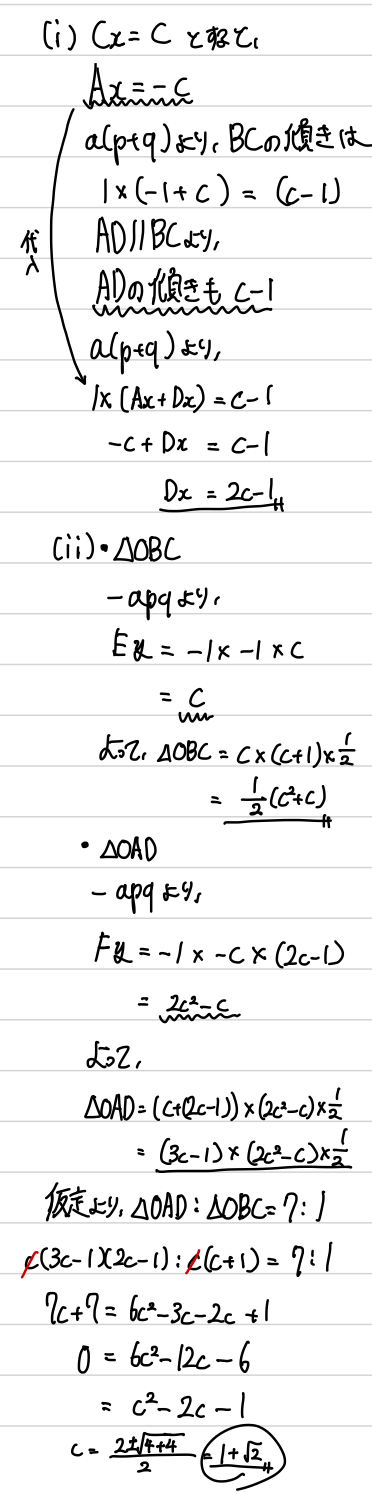 (i) Cx = C とすると、
Ax = -c
a(p+q)より、BCの傾きは
1×(-1+c) = (c-1)
AD//BCより、
代入
ADの傾きも c-1
a(p+q)より、
1×(Ax+Dx) = c-1
-c+Dx = c-1
Dx = 2c-1
(ii)・△OBC
-apqより、
Ey = -1×-1×c
= c
よって、△OBC = c×(c+1)×1/2
= 1/2(c²+c)
・△OAD
-apqより、
Fy = -1×-c×(2c-1)
= 2c²-c
よって、
△OAD = (c+(2c-1))×(2c²-c)×1/2
= (3c-1)×(2c²-c)×1/2
仮定より、△OAD:△OBC = 7:1
c(3c-1)(2c-1):c(c+1) = 7:1
7c+7 = 6c²-3c-2c+1
0 = 6c²-12c-6
= c²-2c-1
c = 2±√4+4/2 = 1+√2